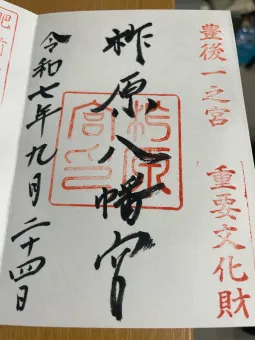 豊後一之宮
重要文化財
柞原八幡宮
柞原宮印
令和七年九月二十四日
肥前